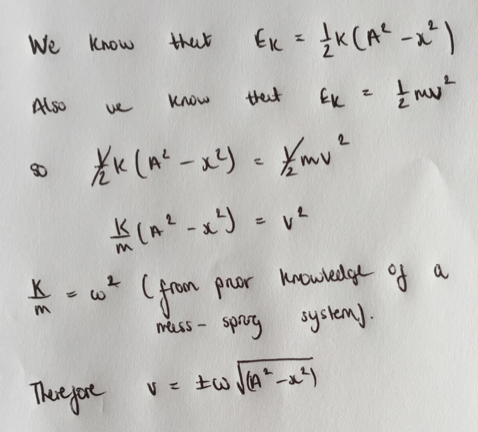 We know that Eк = ½K(A² − x²)
Also we know that Eк = ½mv²
so ½K(A² − x²) = ½mv²
K/m (A² − x²) = v²
K/m = ω² (from prior knowledge of a
mass-spring system).
Therefore v = ±ω√(A² − x²)